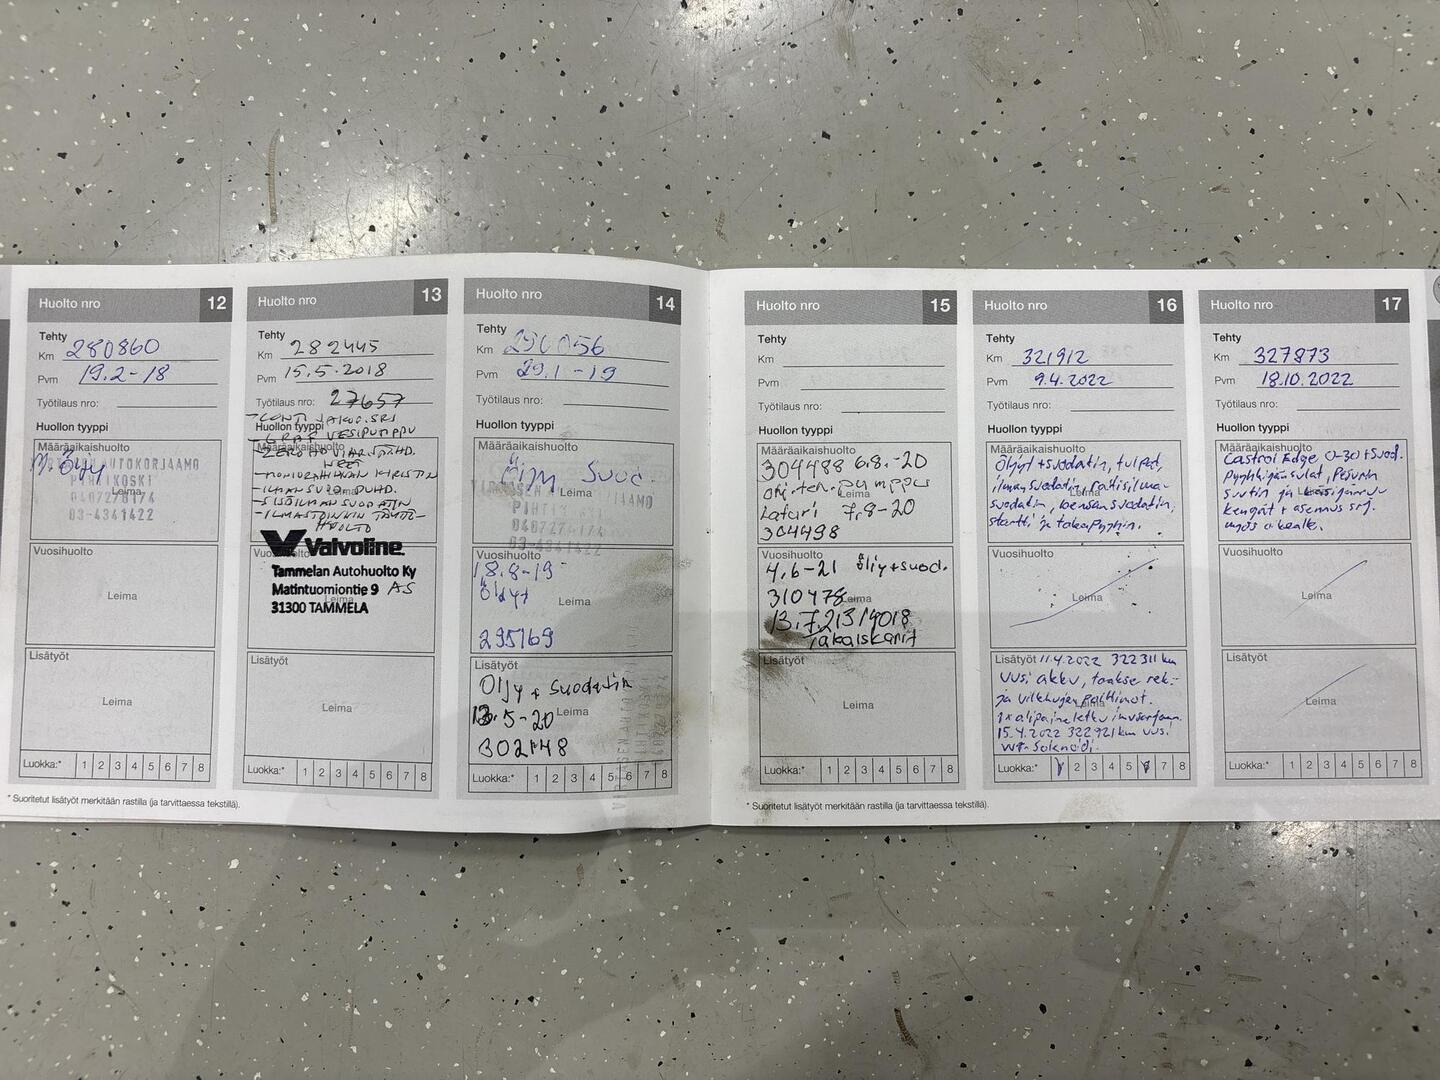 Huolto nro 12
Tehty
Km 280860
Pvm 19.2-18
Työtilaus nro:
Huollon tyyppi
Määräaikaishuolto
AUTOKORJAAMO
0407276174
Leima
03-4341422
Vuosihuolto
Leima
Lisätyöt
Leima
Luokka:* 1 2 3 4 5 6 7 8
Huolto nro 13
Tehty
Km 282445
Pvm 15.5.2018
Työtilaus nro: 27657
Huollon tyyppi
VESIPUMPPU
Määräaikaishuolto
Leima
HUOLTO
Valvoline
Vuosihuolto
Tammelan Autohuolto Ky
Matintuomiontie 9 AS
Leima
31300 TAMMELA
Lisätyöt
Leima
Luokka:* 1 2 3 4 5 6 7 8
Huolto nro 14
Tehty
Km
Pvm 29.1-19
Työtilaus nro:
Huollon tyyppi
Määräaikaishuolto
Öljy Suod.
Leima
0407276174
03-4341422
Vuosihuolto
18.8-19
Öljyt
Leima
295169
Lisätyöt
Öljy + suodatin
13.5-20
Leima
302148
Luokka:* 1 2 3 4 5 6 7 8
* Suoritetut lisätyöt merkitään rastilla (ja tarvittaessa tekstillä).
Huolto nro 15
Tehty
Km
Pvm
Työtilaus nro:
Huollon tyyppi
Määräaikaishuolto
304488 6.8.-20
Ohj.teh. pumppu
Leima
Laturi 7.8-20
304498
Vuosihuolto
4.6-21 öljy+suod.
310478
Leima
13.7.21 314018
Takaiskarit
Lisätyöt
Leima
Luokka:* 1 2 3 4 5 6 7 8
* Suoritetut lisätyöt merkitään rastilla (ja tarvittaessa tekstillä).
Huolto nro 16
Tehty
Km 321912
Pvm 9.4.2022
Työtilaus nro:
Huollon tyyppi
Määräaikaishuolto
Öljyt + suodatin, tulpat,
ilmansuodatin, raitisilma-
Leima
suodatin, bensansuodatin,
startti ja takapyyhin.
Vuosihuolto
Leima
Lisätyöt 11.4.2022 322311 km
uusi akku, taakse rek.-
ja vilkkujen polttimot.
Leima
1x alipaineletku imusarjaan.
15.4.2022 322921 km uusi
VVT-solenoidi.
Luokka:* 1 2 3 4 5 6 7 8
Huolto nro 17
Tehty
Km 327873
Pvm 18.10.2022
Työtilaus nro:
Huollon tyyppi
Määräaikaishuolto
Castrol Edge 0-30 + suod.
Pyyhkijän sulat, pesurin
suutin ja käsijarru
Leima
kengät + asennus srj.
myös akealle.
Vuosihuolto
Leima
Lisätyöt
Leima
Luokka:* 1 2 3 4 5 6 7 8